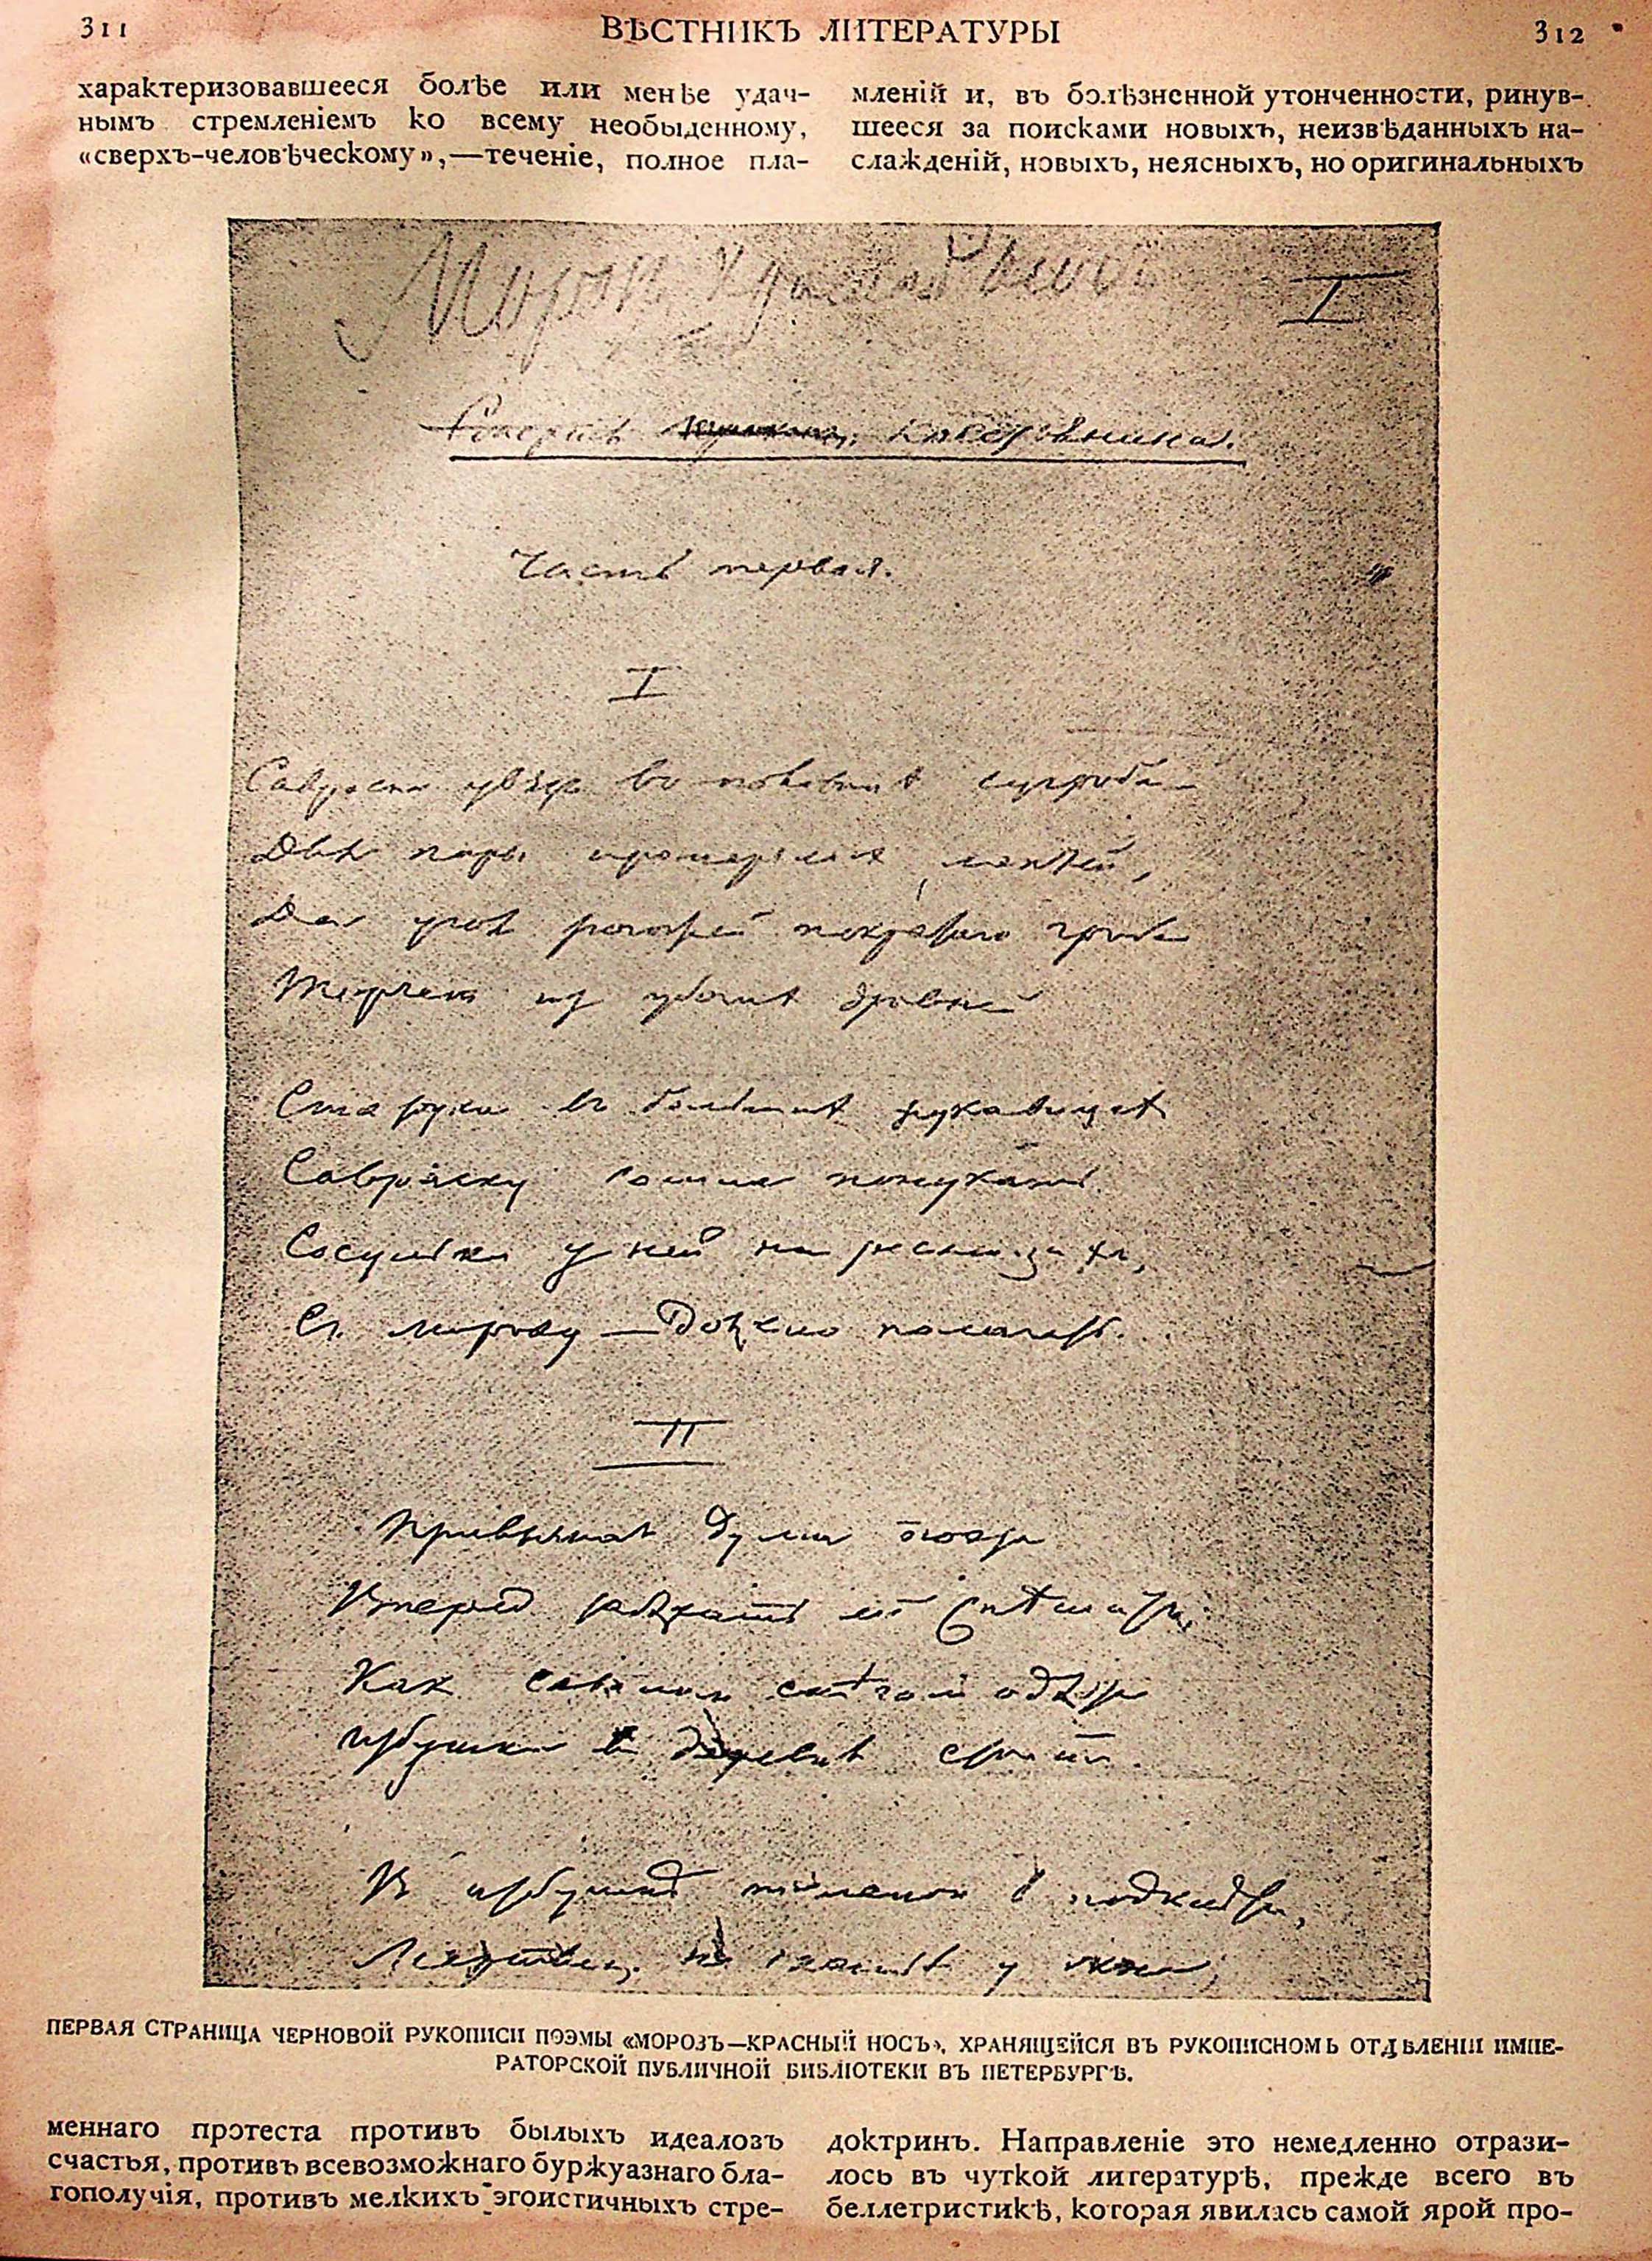 311
ВѢСТНИКЪ ЛИТЕРАТУРЫ
312
характеризовавшееся болѣе или менѣе удач-
нымъ стремленіемъ ко всему необыденному,
«сверхъ-человѣческому»,—теченіе, полное пла-
мленій и, въ болѣзненной утонченности, ринув-
шееся за поисками новыхъ, неизвѣданныхъ на-
слажденій, новыхъ, неясныхъ, но оригинальныхъ
Мороз Красный нос
I
Смерть
Часть первая.
I
Савраска увяз в половинѣ сугроба —
Двѣ пары промерзлых лаптей,
Да угол рогожей покрытаго гроба
Торчат из убогих дровней
Старуха в больших рукавицах
Савраску сошла понукать
Сосульки у ней на ресницах,
С морозу — должно полагать.
II
Привычная дума поэта
Вперед забѣжать ей спѣшит:
Как саваном снѣгом одѣта
Избушка в деревнѣ стоит
В избушкѣ теленок в подклѣти,
Мертвец на скамьѣ у окна;
ПЕРВАЯ СТРАНИЦА ЧЕРНОВОЙ РУКОПИСИ ПОЭМЫ «МОРОЗЪ—КРАСНЫЙ НОСЪ», ХРАНЯЩЕЙСЯ ВЪ РУКОПИСНОМЪ ОТДѢЛЕНІИ ИМПЕ-
РАТОРСКОЙ ПУБЛИЧНОЙ БИБЛІОТЕКИ ВЪ ПЕТЕРБУРГѢ.
меннаго протеста противъ былыхъ идеаловъ
счастья, противъ всевозможнаго буржуазнаго бла-
гополучія, противъ мелкихъ эгоистичныхъ стре-
доктринъ. Направленіе это немедленно отрази-
лось въ чуткой литературѣ, прежде всего въ
беллетристикѣ, которая явилась самой ярой про-